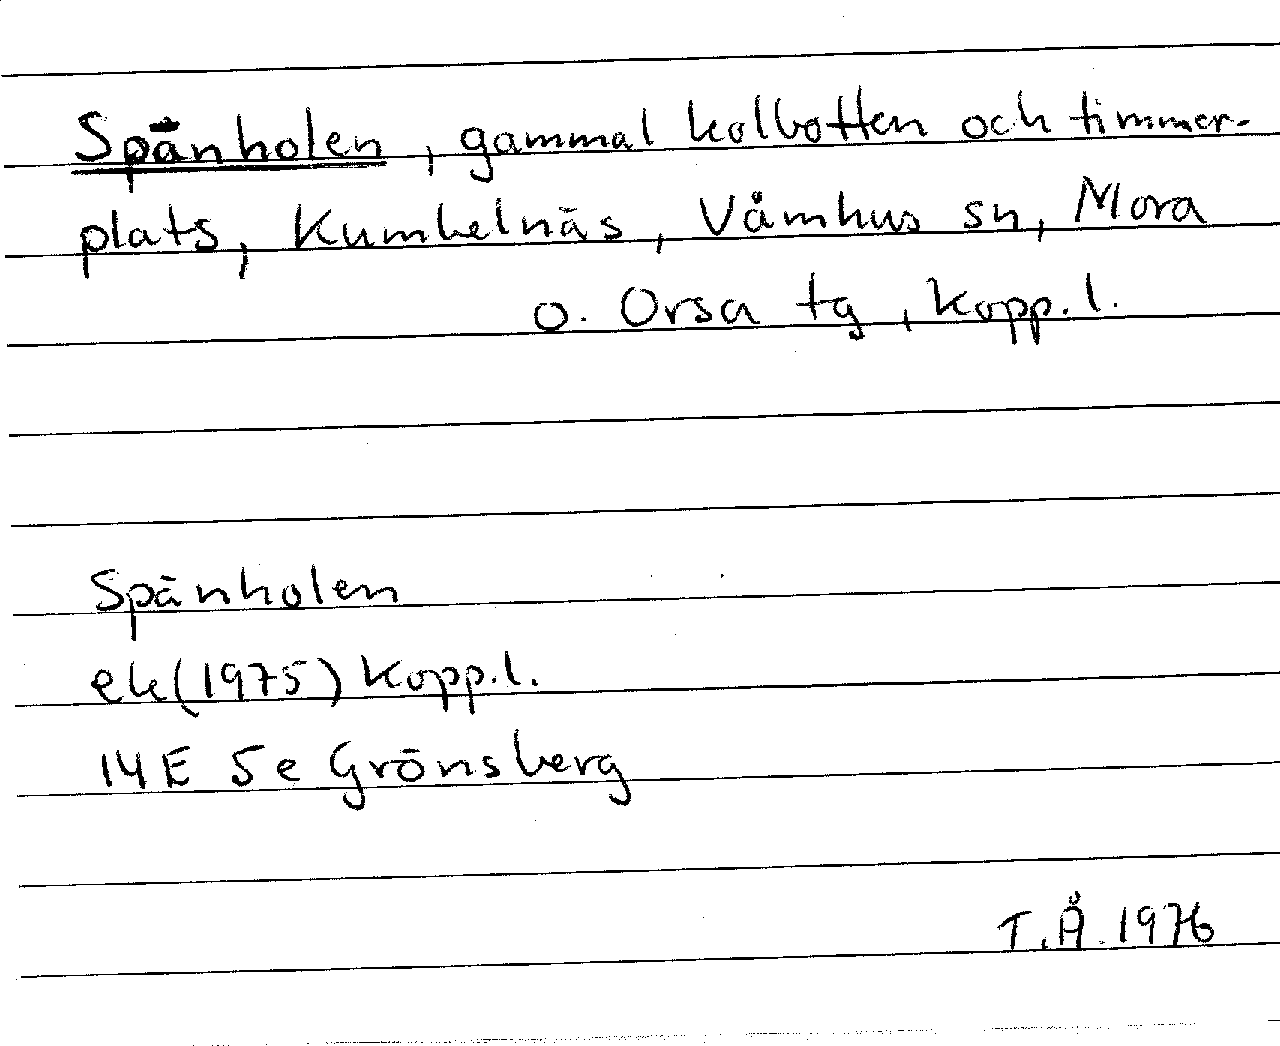 Spänholen, gammal kolbotten och timmer-
plats, Kumbelnäs, Våmhus sn, Mora
o. Orsa tg, Kopp. l.
Spänholen
ek (1975) Kopp. l.
14E 5e Grönsberg
T. Å. 1976